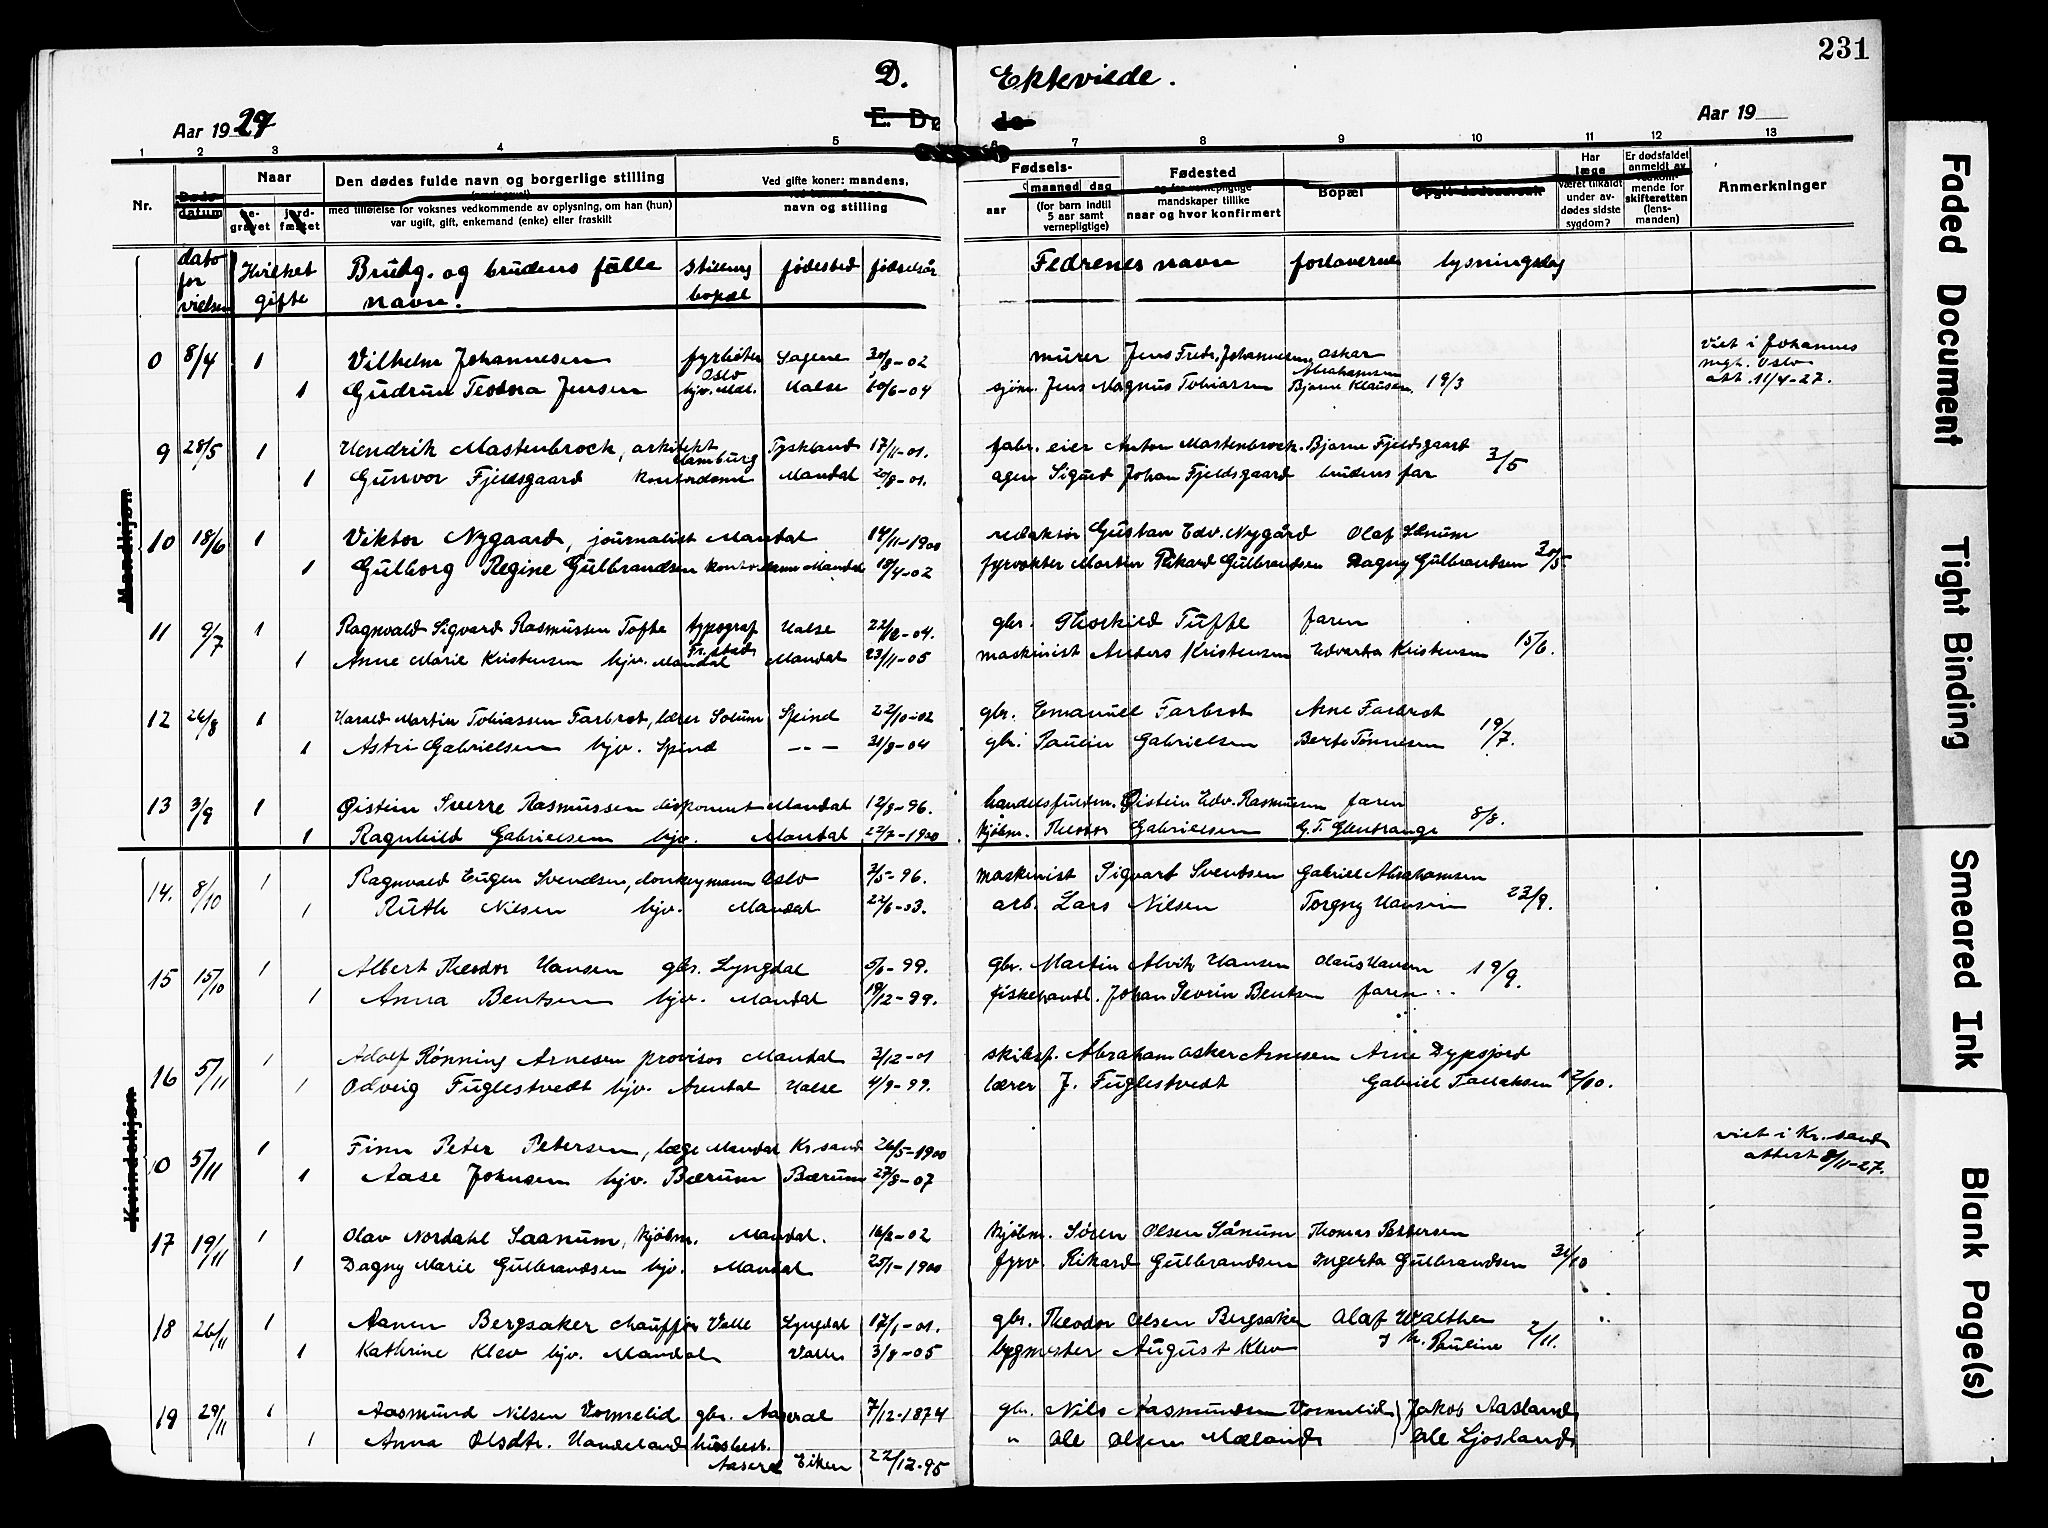 231
D. Ektevilde.
Aar 1927
E. Dø de
Aar 19
1 2 3 4 5 7 8 9 10 11 12 13
Nr.
Døds-
datum
Naar
be-
gravet
jord-
fæstet
Den dødes fulde navn og borgerlige stilling
med tilføielse for voksnes vedkommende av oplysning, om han (hun)
var ugift, gift, enkemand (enke) eller fraskilt
Ved gifte koner: mandens,
navn og stilling
Fødsels-
aar
maaned dag
(for barn indtil
5 aar samt
vernepligtige)
Fødested
og for vernepligtige
mandskaper tillike
naar og hvor konfirmert
Bopæl
Opgit dødsaarsak
Har
læge
været tilkaldt
under av-
dødes sidste
sygdom?
Er dødsfaldet
anmeldt av
vedkom-
mende for
skifteretten
(lens-
manden)
Anmerkninger
dato
for
vielsen
Hvilket
gifte
Brudg. og brudens fulle
navn.
stilling
bopæl
fødested
fødselsår
Fedrenes navn
forloverne
lysningsdag
Mandkjøn
0 8/4 1 Vilhelm Johannesen fyrbøter Sagene 30/8-02 murer Jens Fredr. Johannesen oskar
Abrahamsen
Oslo
1 Gudrun Teodora Jensen hjv. Mdl. Halse 10/6-04 sjøm. Jens Magnus Tobiassen Bjarne Klausen. 19/3
viet i Johannes
mgh. Oslo
att. 11/4-27.
9 28/5 1 Hendrik Mastenbrock, arkitekt Tyskland 17/11-01. fabr. eier Anton Mastenbrock. Bjarne Fjeldsgaard
Hamburg
1 Gunvor Fjeldsgaard kontordame Mandal 20/8-01. agen Sigurd Johan Fjeldsgaard brudens far 3/5
10 18/6 1 Viktor Nygaard, journalist Mandal 14/11-1900 redaktør Gustav Edv. Nygård Olaf Sånum
1 Gulborg Regine Gulbrandsen kontordame Mandal 18/4-02 fyrvokter Morten Rikard Gulbrandsen Dagny Gulbrandsen 30/5
11 9/7 1 Ragnvald Sigvard Rasmussen Tofte typograf Halse 22/2-04. gbr. Thorkild Tufte faren
Fr.stad
1 Anne Marie Kristensen hjv. Mandal Mandal 23/11-05 maskinist Anders Kristensen Edvarda Kristensen 15/6.
12 26/8 1 Harald Martin Tobiassen Farbrot, lærer Solum Spind 22/10-02 gbr. Emanuel Farbrot Arne Farbrot
1 Astri Gabrielsen hjv. Spind -- - 31/8-04 gbr. Paulin Gabrielsen Berte Tønnesen 19/7.
13 3/9 1 Øistein Sverre Rasmussen disponent Mandal 12/8-96. handelsfuldm. Øistein Edv. Rasmussen faren
1 Ragnhild Gabrielsen hjv. Mandal 22/7-1900 kjøbm. Theodor Gabrielsen G.T. Glendrange 8/8.
Kvindekjøn
14. 8/10 1 Ragnvald Eugen Svendsen, donkeymann Oslo 3/5-96. maskinist Sigvart Svendsen Gabriel Abrahamsen
1 Ruth Nilsen hjv. Mandal 22/6-03. arb. Lars Nilsen Torgny Hansen 23/9.
15 15/10 1 Albert Theodor Hansen gbr. Lyngdal 5/6-99. gbr. Martin Alvik Hansen Olaus Hansen
1 Anna Bentsen hjv. Mandal 19/12-99. fiskehandl. Johan Severin Bentsen faren 19/9.
16 5/11 1 Adolf Rønning Arnesen provisor Mandal 3/12-01 skibsf. Abraham Asker Arnesen Arne Dypsjord
1 Odveig Fuglestvedt hjv. Arendal Halse 4/9-99. lærer J. Fuglestvedt Gabriel Tallaksen 12/10.
0 5/11 1 Finn Peter Petersen, læge Mandal Kr.sand 26/5-1900
1 Aase Johnsen hjv. Bærum Bærum 27/8-07
viet i Kr.sand
attest 8/11-27.
17 19/11 1 Olav Nordahl Saanum, kjøbm. Mandal. 16/2-02 kjøbm. Søren Olsen Sånum Thomas Pettersen
1 Dagny Marie Gulbrandsen hjv. Mandal 25/1-1900 fyrv. Rikard Gulbrandsen Ingerta Gulbrandsen 31/10
18 26/11 1 Aanen Bergsaker chauffør Valle Lyngdal 17/1-01. gbr. Theodor Olsen Bergsaker Olaf Walther
1 Kathrine Klev hjv. Mandal Valle 3/8-05 bygmester August Klev J M. Pauline 2/11.
19 29/11 1 Aasmund Nilsen Vormelid gbr. Aaseral 7/12-1874 gbr. Nils Aasmundsen Vormelid Jakob Aasland
1 Anna Olsdtr. Haaneland husbest. " Ole Olsen Mæland Ole Ljosland
Aaseral Eiken 22/12-95
Faded Document
Tight Binding
Smeared Ink
Blank Page(s)